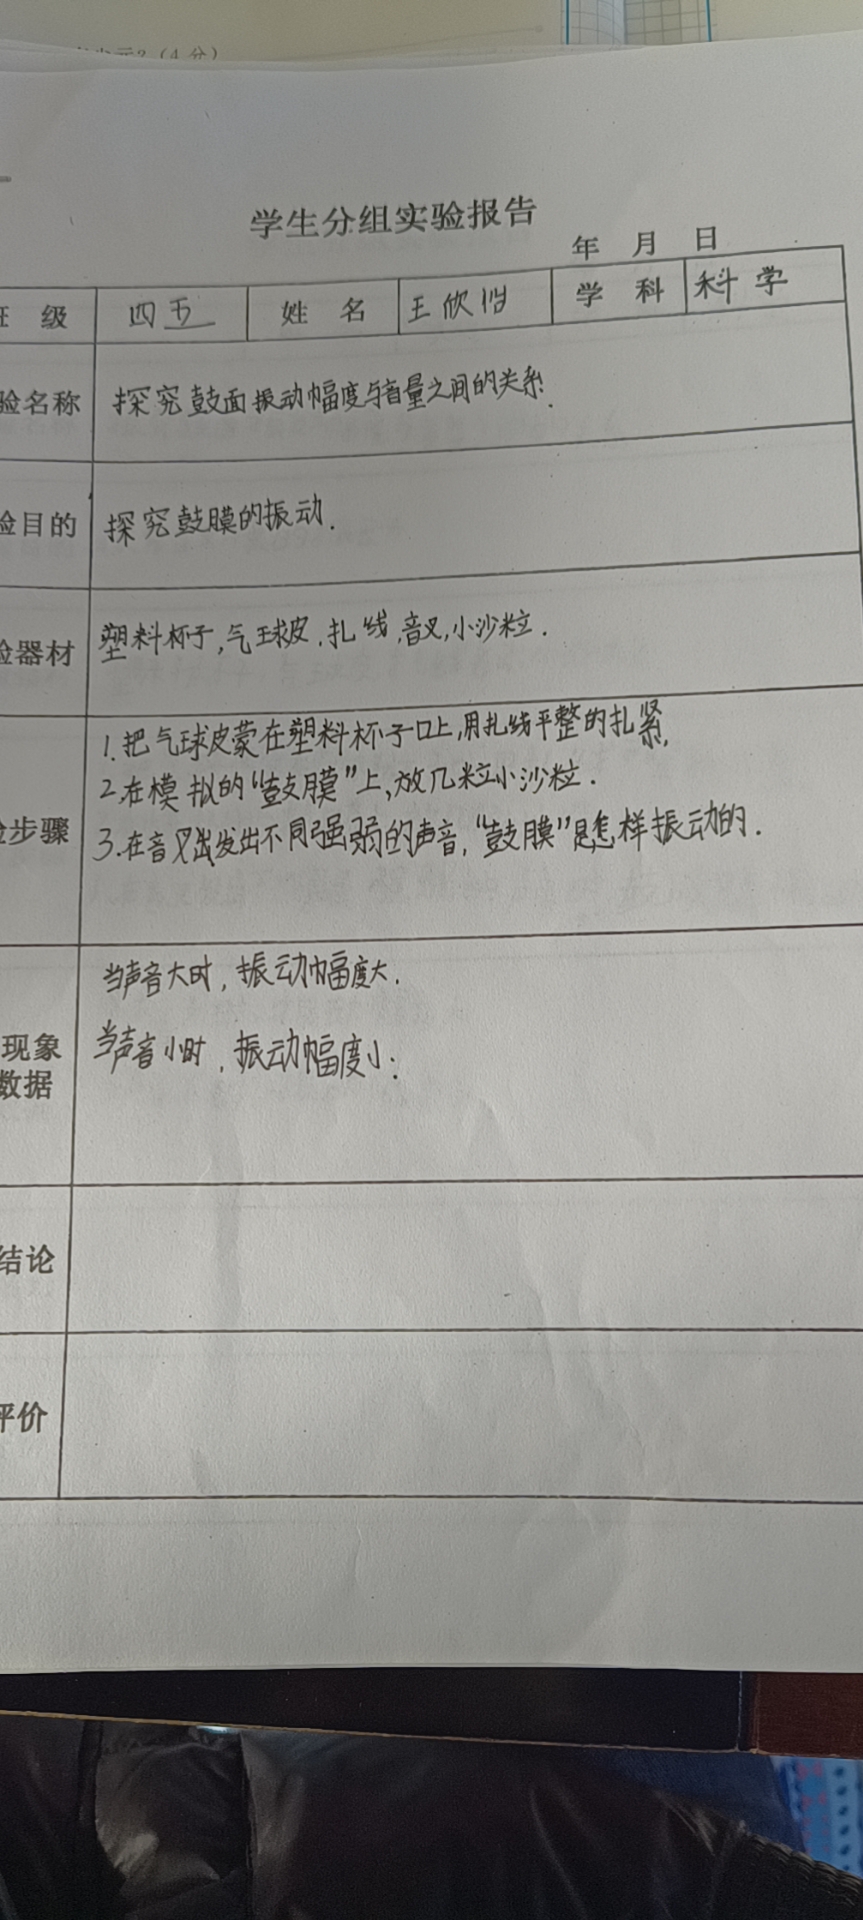 学生分组实验报告
年 月 日
级 四五 姓 名 王欣怡 学 科 科学
验名称 探究鼓面振动幅度与音量之间的关系.
验目的 探究鼓膜的振动.
验器材 塑料杯子,气球皮,扎线,音叉,小沙粒.
1.把气球皮蒙在塑料杯子口上,用扎线平整的扎紧,
2.在模拟的“鼓膜”上,放几粒小沙粒.
步骤 3.在音叉发出不同强弱的声音,“鼓膜”是怎样振动的.
当声音大时,振动幅度大.
现象 当声音小时,振动幅度小.
数据
结论
评价